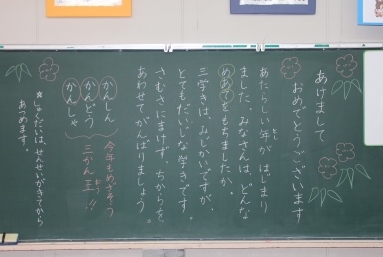 あけまして
おめでとうございます
あたらしい年がはじまり
ました。みなさんは、どんな
めあてをもちましたか。
三学きは、みじかいですが、
とてもだいじな学きです。
さむさにまけず、ちからを
あわせてがんばりましょう。
かんしん
かんどう
かんしゃ
今年もめざそう
三かん王!!
☆しゅくだいは、せんせいがきてから
あつめます。